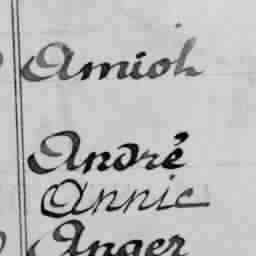 Amioh
André
Annic
Anger